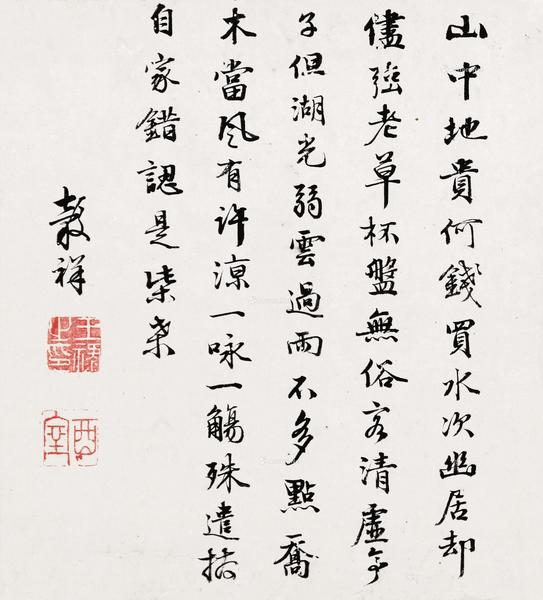 山中地貴何錢買水次幽居却
儘強老草杯盤無俗客清虛亭
子俱湖光弱雲過雨不多點喬
木當風有許涼一咏一觴殊遣拙
自家錯認是柴桑
穀祥
王祿之印
酉室